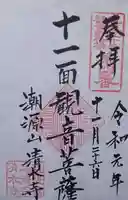 奉拝
令和元年
十一月二十六日
十一面観音菩薩
潮源山 清泉寺